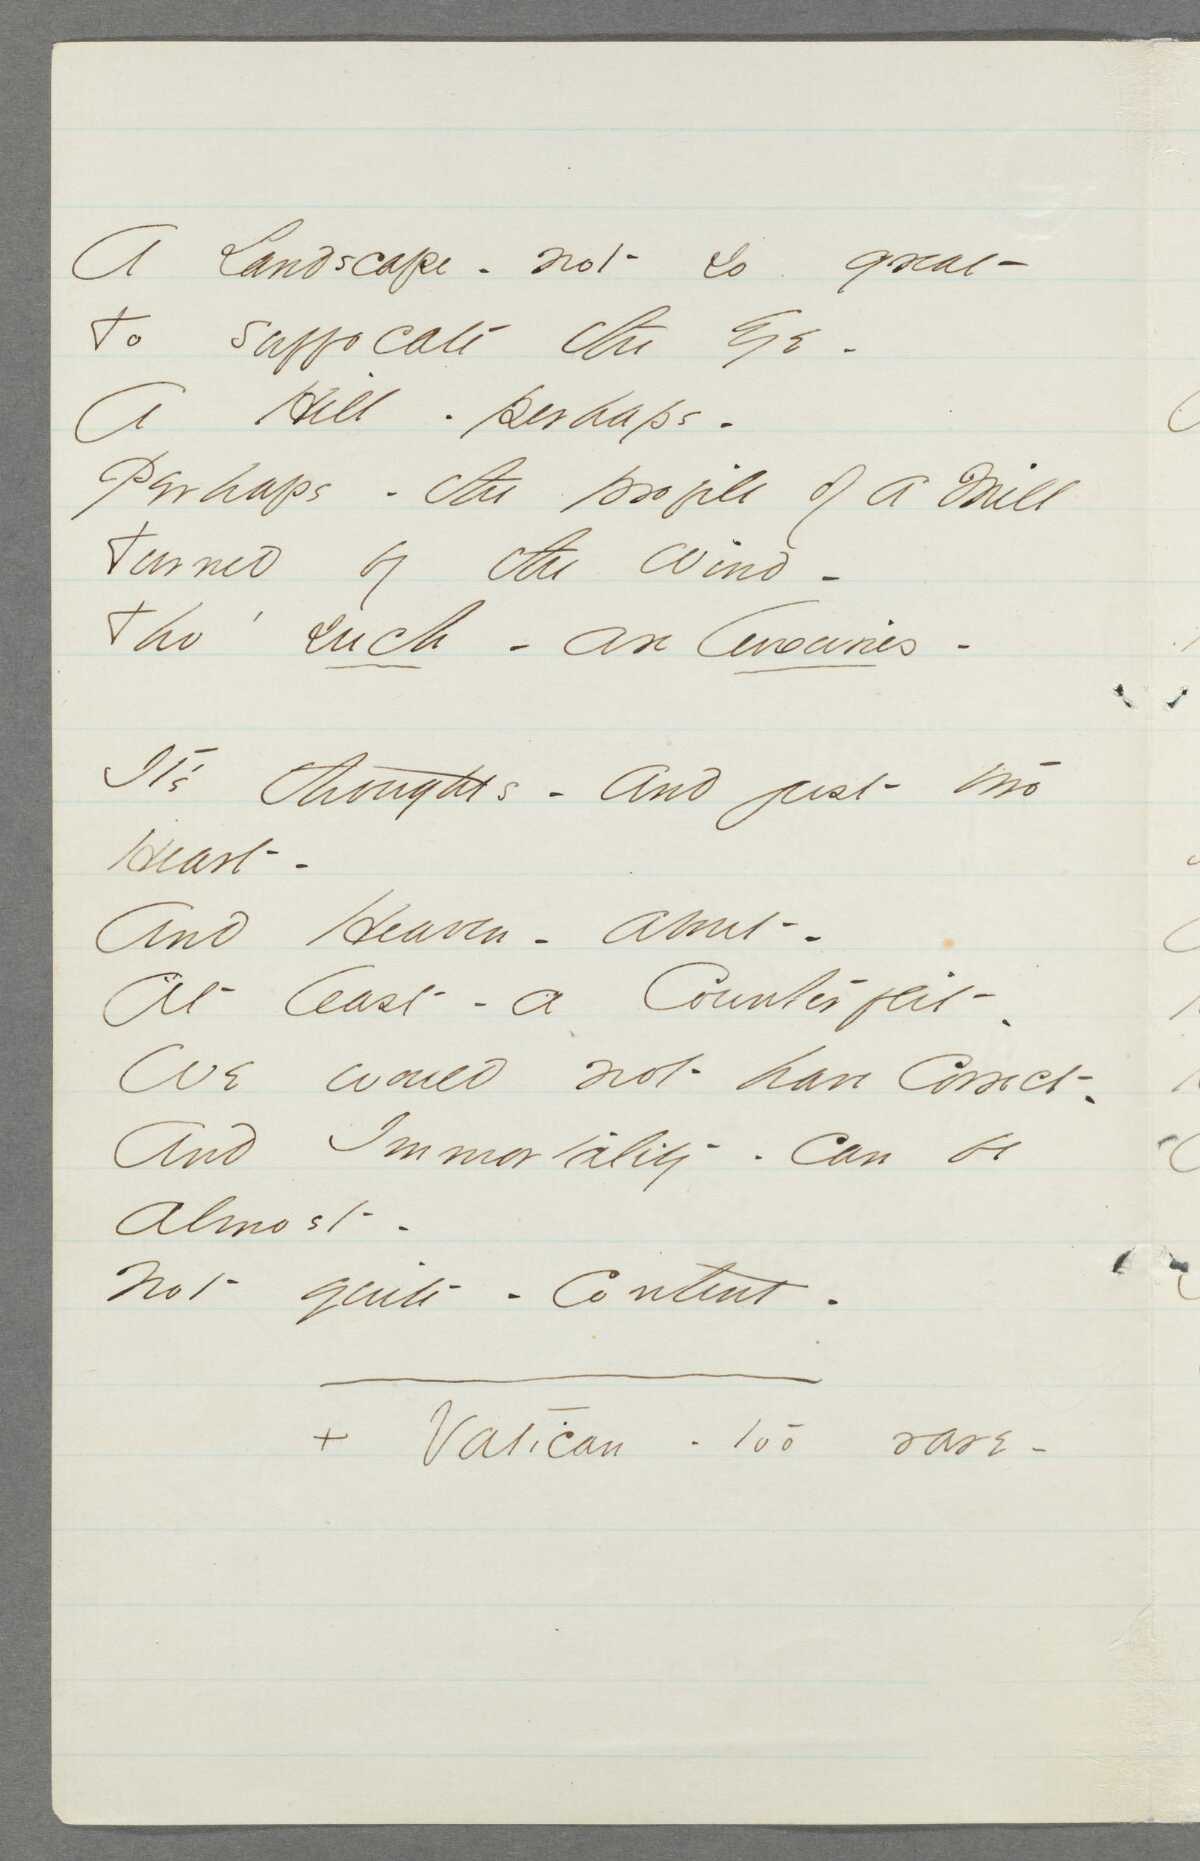 A Landscape - not so great
To suffocate the Eye -
A Hill - perhaps -
Perhaps - the profile of a Mill
Turned by the Wind -
Tho' such - are luxuries -
It's thoughts - and just two
Heart -
And Heaven - about -
At least - a Counterfeit -
We would not have Correct -
And Immortality - can be
almost -
Not quite - Content -
+ Vatican - too rare -